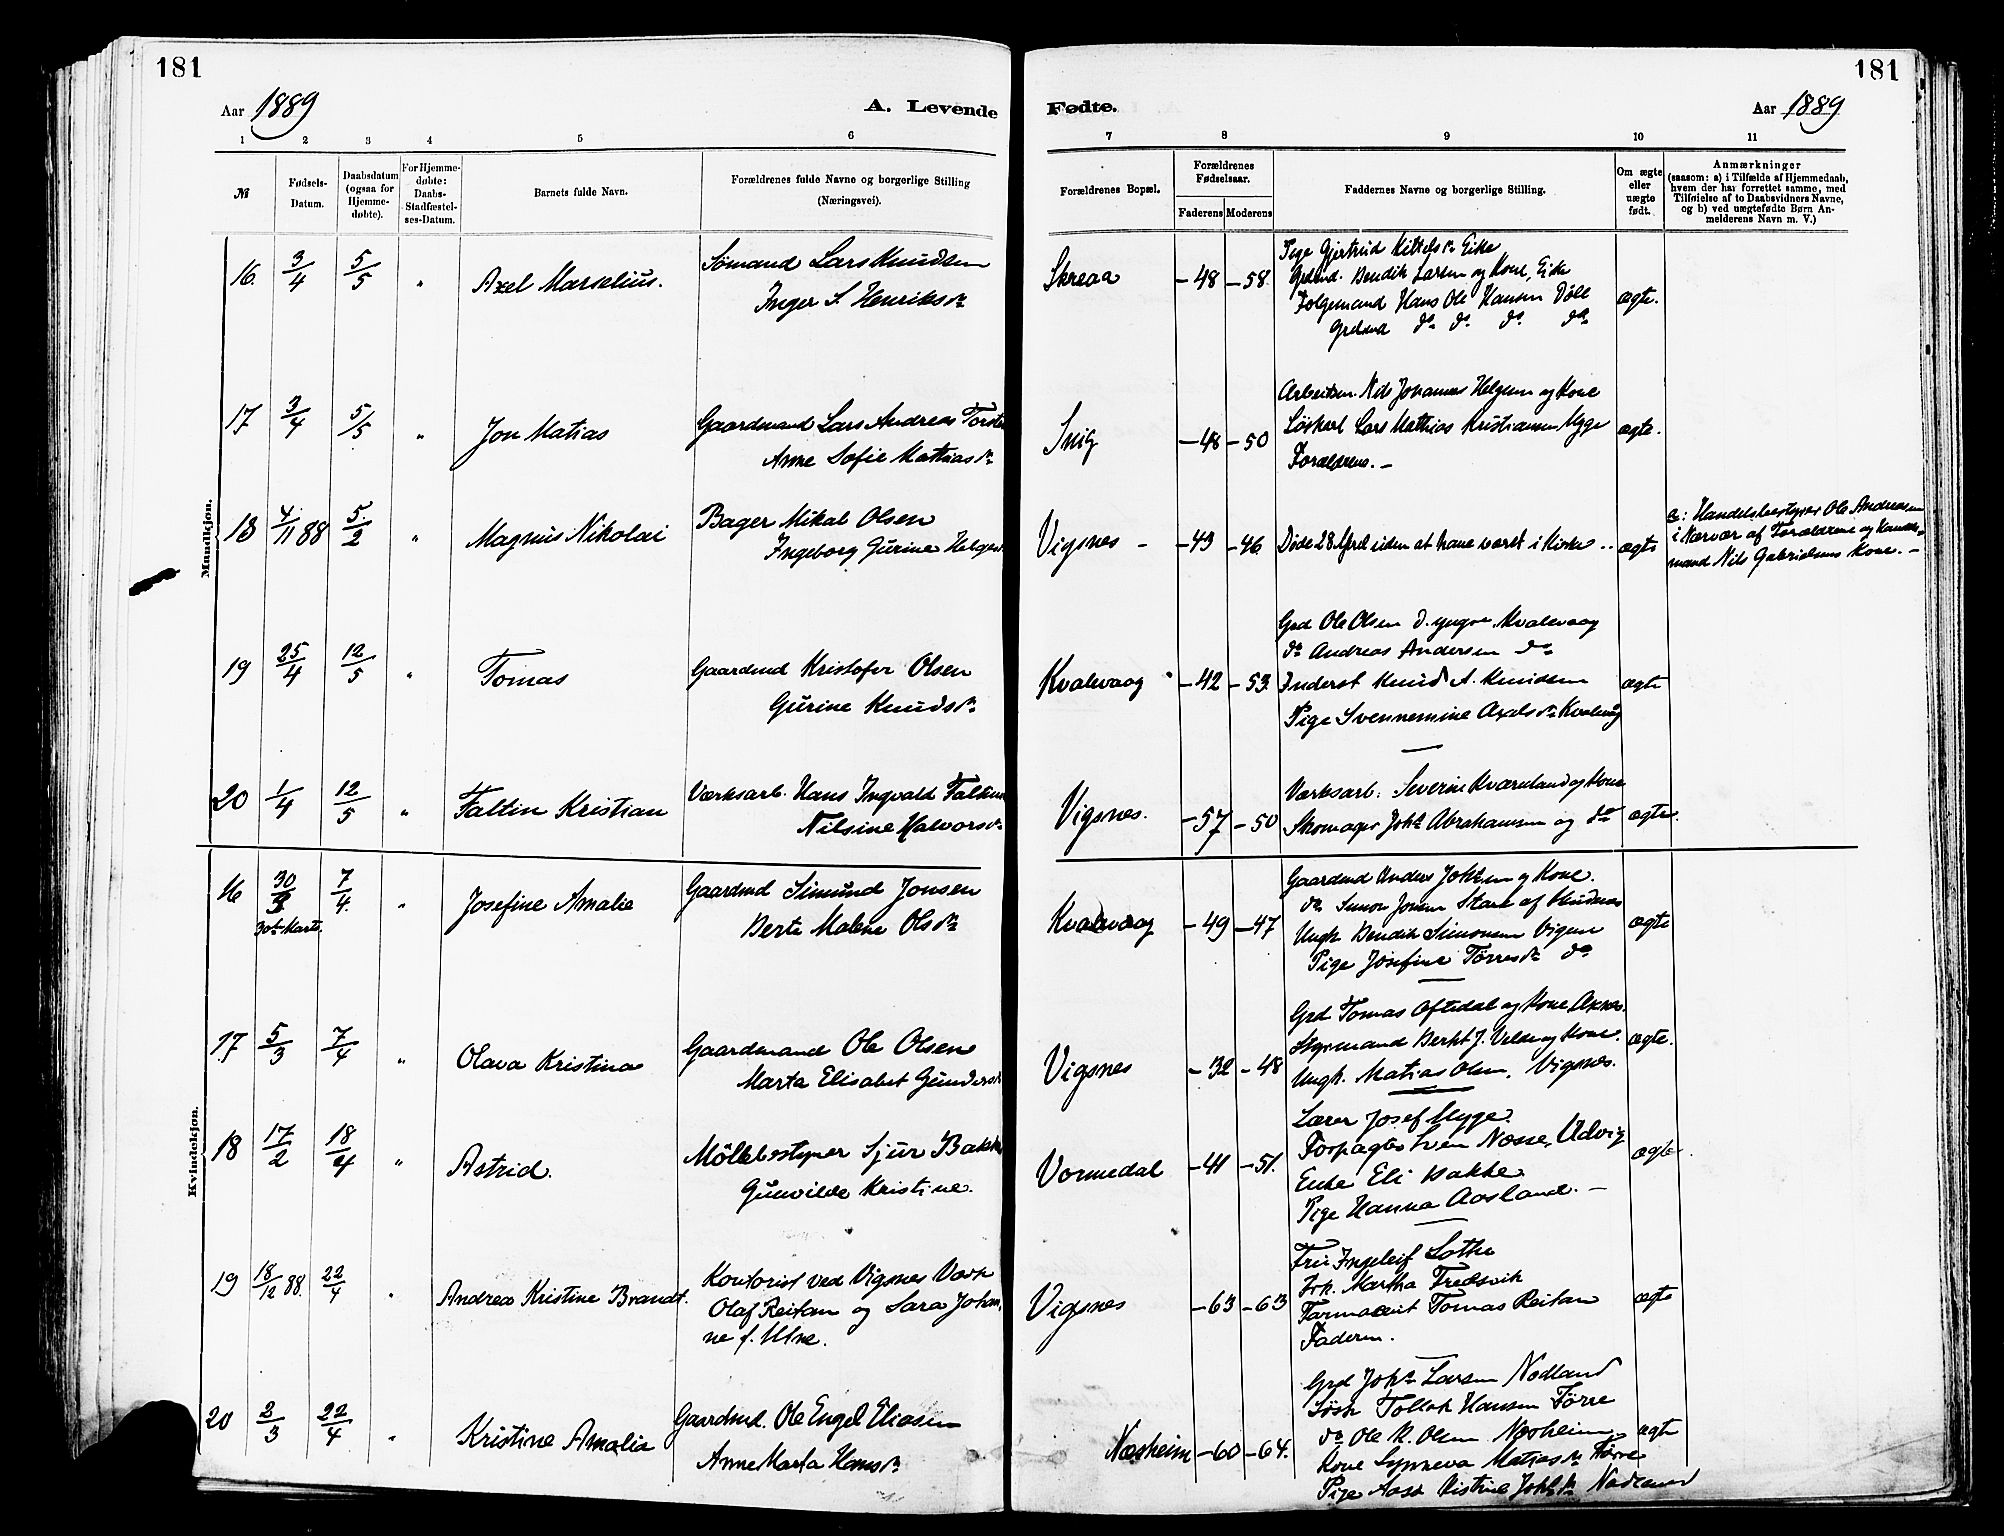 181
181
Aar 1889
A. Levende
Fødte.
Aar 1889
1 2 3 4 5 6 7 8 9 10 11
№
Fødsels-
Datum.
Daabsdatum
(ogsaa for
Hjemme-
døbte).
For Hjemme-
døbte:
Daabs-
Stadfæstel-
ses-Datum.
Barnets fulde Navn.
Forældrenes fulde Navne og borgerlige Stilling
(Næringsvei).
Forældrenes Bopæl.
Forældrenes
Fødselsaar.
Faderens Moderens
Faddernes Navne og borgerlige Stilling.
Om ægte
eller
uægte
født.
Anmærkninger
(saasom: a) i Tilfælde af Hjemmedaab,
hvem der har forrettet samme, med
Tilføielse af to Daabsvidners Navne,
og b) ved uægtefødte Børn An-
melderens Navn m. V.)
Mandkjøn.
16. 3/4 5/5 „ Axel Marselius.
Sømand Lars Knudsen
Inger S. Henriksdr
Skreaa -48 -58.
Pige Gjertrud Kittelsdr Eike
Grdmd. Bendik Larsen og Kone, Eike
Følgemand Hans Ole Hansen Døll
Grdmd do do do do
ægte.
17 3/4 5/5 „ Jon Matias
Gaardmand Lars Andreas Torste
Anne Sofie Mattiasdr
Snig -48 -50
Arbeidsm. Nils Johannes Helgesen og Kone
Løskarl Lars Mathias Kristiansen Myge
Forældrene. -
ægte.
18 4/11 88 5/2 „ Magnus Nikolai
Bager Mikal Olsen
Ingeborg Gurine Helges
Vigsnes - -43 -46
Døde 28 April uden at have været i Kirke ..
ægte
a: Handelsbestyrer Ole Andreasen
i Nærvær af Forældrene og
mand Nils Gabrielsens Kone. -
19 25/4 12/5 „ Tomas
Gaardmd Kristofer Olsen
Gurine Knudsdr
Kvalevaag -42 -53.
Grd Ole Olsen d. yngre, Kvalevaag
do Andreas Andersen do
Inderst Knud A. Knudsen
Pige Svennemine Axelsdr Kvalevåg
ægte
20 1/4 12/5 „ Faltin Kristian
Værksarb. Hans Ingvald
Nilsine Halvorsdr
Vigsnes. -57 -50
Værksarb. Severin Kværneland og Kone
Skomager Johs Abrahamsen og do
ægte.
Kvindekjøn.
16 30/3 7/4. „ Josefine Amalie
30te Marts.
Gaardmd Simund Jonsen
Berte Malene Olsdr
Kvalevaag -49 -47
Gaardmd Anders Johnsen og Kone.
do Simon Jonsen Stave af Skudenes
Ungk. Bendik Simonsen Vigsnes
Pige Josefine Tørresdr do
ægte
17 5/3 7/4 „ Olava Kristina
Gaardmand Ole Olsen
Marta Elisabet Gundersdr
Vigsnes -32 -48
Grd Tomas Oftedal og Kone
Styrmand Berht J. Velde og Kone.
Ungk. Matias Olsen, Vigsnes.
ægte.
18 17/2 18/4 „ Astrid.
Møllebestyrer Sjur Bakke
Gunvilde Kristine.
Vormedal -41 -51.
Lærer Josef Mygge.
Forpagter Sven Nesse, Udvig
Enke Eli Bakke
Pige Hanna Aasland. -
ægte
19 18/12 88. 22/4 „ Andrea Kristine Brandt.
Kontorist ved Vigsnes Værk
Olaf Reitan og Sara Johan
ne f. Ulve.
Vigsnes -63 -63
Fru Ingeleif Lothe
Frk. Martha Fredsvik
Farmaceut Tomas Reitan
Faderen.
ægte
20 2/3 22/4 „ Kristine Amalia
Gaardmd. Ole Engel Eliasen
Anne Marta Hansdr
Næsheim -60 -64.
Grd Johs Larsen Nodland
Løsk Tollak Hansen Førre
do Ole K. Olsen Nesheim
Kone Synneva Matiasdr Førre
Pige Aasa Kistine Johsdr Nodland
ægte